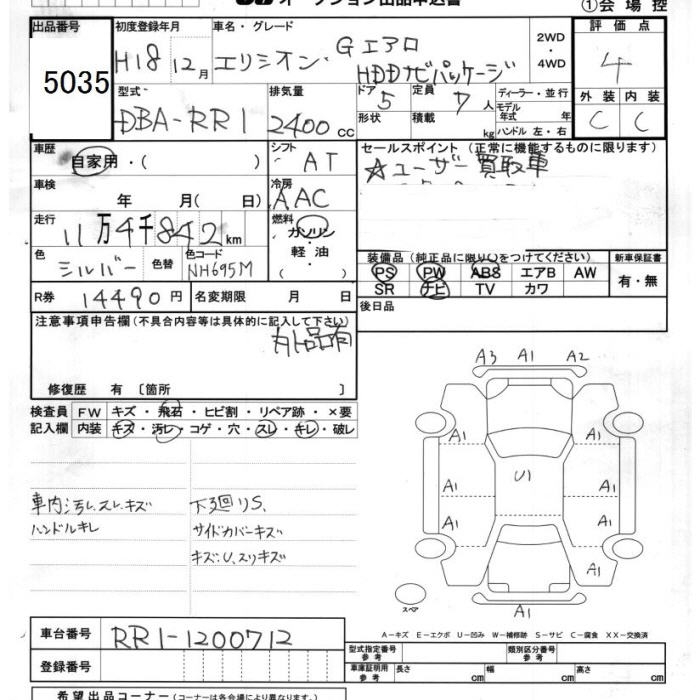 オークション出品申込書
①会場控
出品番号 初度登録年月 車名・グレード 評価点
5035 H18 12月 エリシオン・Gエアロ HDDナビパッケージ 2WD ・4WD 4
型式 排気量 ドア 定員 ディーラー・並行 外装 内装
DBA-RR1 2400cc 5 7人 モデル年式 年 C C
形状 積載 kg ハンドル 左・右
車歴 シフト セールスポイント (正常に機能するものに限ります)
自家用・( ) AT ☆ユーザー買取車
車検 冷房
年 月( 日) AAC
走行 燃料
11万4千842km ガソリン・軽油・( )
装備品(純正品に限り○をつけてください) 新車保証書
色 色替 色コード PS PW ABS エアB AW 有・無
シルバー NH695M SR ナビ TV カワ
R券 14490円 名変期限 月 日 後日品
注意事項申告欄(不具合内容等は具体的に記入して下さい)
外品有
修復歴 有 〔箇所 〕
検査員 FW キズ・飛石・ヒビ割・リペア跡・×要
記入欄 内装 キズ・汚レ・コゲ・穴・スレ・キレ・破レ
A3 A1 A2
A1 A1
U1
A1 A1
A1 A1
A1 A1
車内汚レ、スレ、キズ 下廻りS、
ハンドルキレ サイドカバーキズ
キズ、U、スリキズ
スペア
A-キズ E-エクボ U-凹み W-補修跡 S-サビ C-腐食 XX-交換済
車台番号 RR1-1200712
型式指定番号 参考 類別区分番号 参考
登録番号
車庫証明用 参考 長さ cm 幅 cm 高さ cm
希望出品コーナー(コーナーは各会場により異なります。)